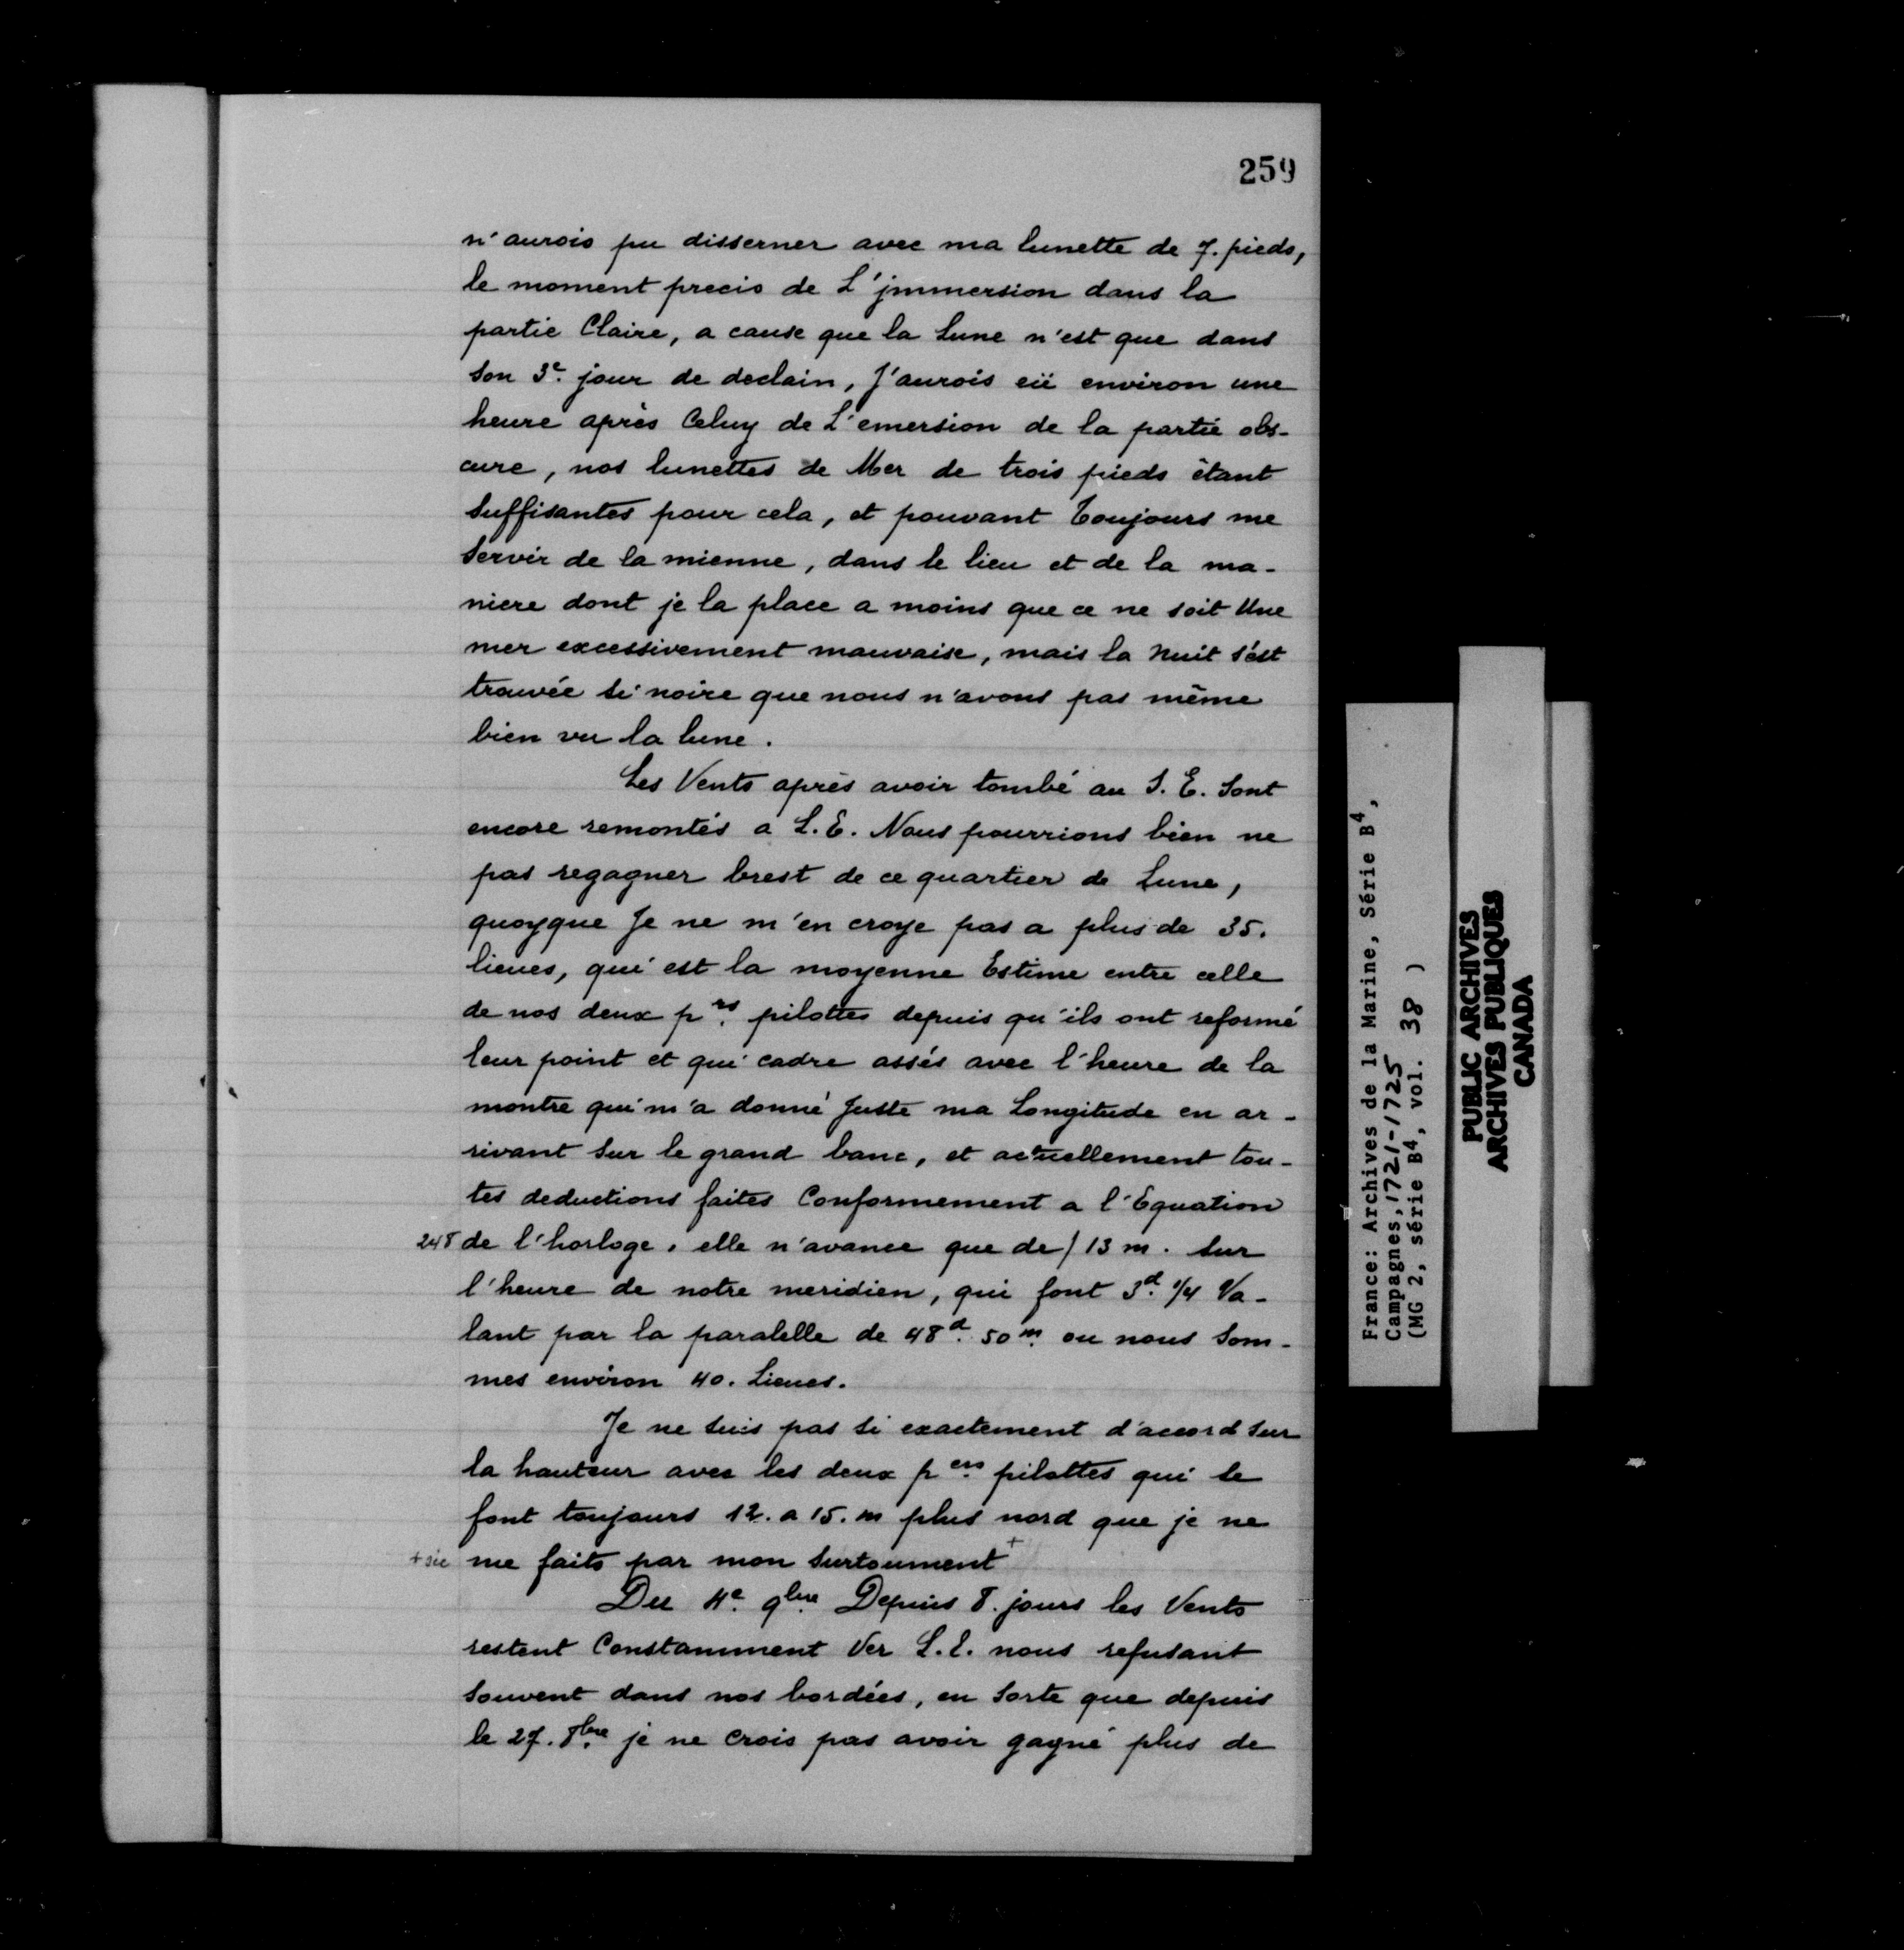 259
n'aurois pu disserner avec ma lunette de 7. pieds,
le moment precis de L'jmmersion dans la
partie Claire, a cause que la Lune n'est que dans
son 3e. jour de declain, J'aurois eü environ une
heure après Celuy de L'emersion de la partie obs-
cure, nos lunettes de Mer de trois pieds étant
suffisantes pour cela, et pouvant Toujours me
servir de la mienne, dans le lieu et de la ma-
niere dont je la place a moins que ce ne soit Une
mer excessivement mauvaise, mais la Nuit s'est
trouvée si noire que nous n'avons pas même
bien vu la lune.
Les Vents après avoir tombé au S. E. Sont
encore remontés a L. E. Nous pourrions bien ne
pas regagner brest de ce quartier de Lune,
quoyque Je ne m'en croye pas a plus de 35.
lieues, qui est la moyenne Estime entre celle
de nos deux prs. pilottes depuis qu'ils ont reformé
leur point et qui cadre assés avec l'heure de la
montre qui m'a donné Juste ma Longitude en ar-
rivant sur le grand banc, et actuellement tou-
tes deductions faites Conformement a l'Equation
248 de l'horloge, elle n'avance que de / 13 m. sur
l'heure de notre meridien, qui font 3d. 1/4 Va-
lant par la paralelle de 48d. 50m. ou nous Som-
mes environ 40. Lieues.
Je ne suis pas si exactement d'accord sur
la hauteur avec les deux pers. pilottes qui se
font toujours 12. a 15. m plus nord que je ne
+ sic me faits par mon surtoument +
Du 4e. 9bre. Depuis 8. jours les Vents
restent Constamment Ver L. E. nous refusant
souvent dans nos bordées, en Sorte que depuis
le 27. 8bre. je ne Crois pas avoir gagné plus de
France: Archives de la Marine, Série B4,
Campagnes, 1721-1725
(MG 2, série B4, vol. 38 )
PUBLIC ARCHIVES
ARCHIVES PUBLIQUES
CANADA